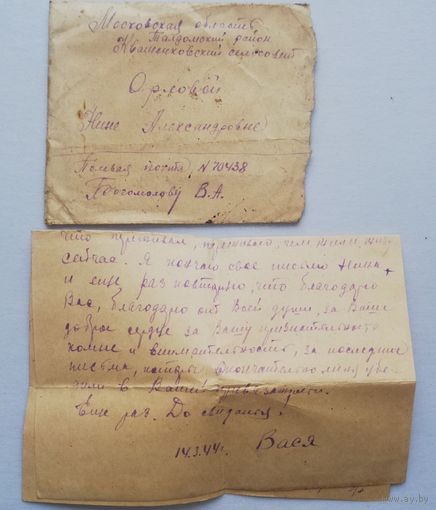 Московская область
Талдомский район
Квашенковский сельсовет
Орловой
Нине Александровне
Полевая почта N 70438
Богомолову В.А.
что переживал,
сейчас. Я кончаю свое письмо Нина
и еще раз повторяю, что благодарю
Вас, благодарю от Всей души, за Ваше
доброе сердце за Вашу признательность
комне и внимательность, за последние
письма, окончательно меня убе-
дили в Вашей
Еще раз. До свидания.
14.3.44г. Вася
www.ay.by